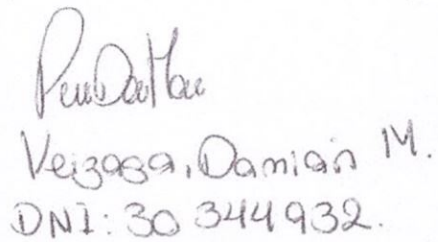 Veizaga, Damián M.
DNI: 30 344 932.